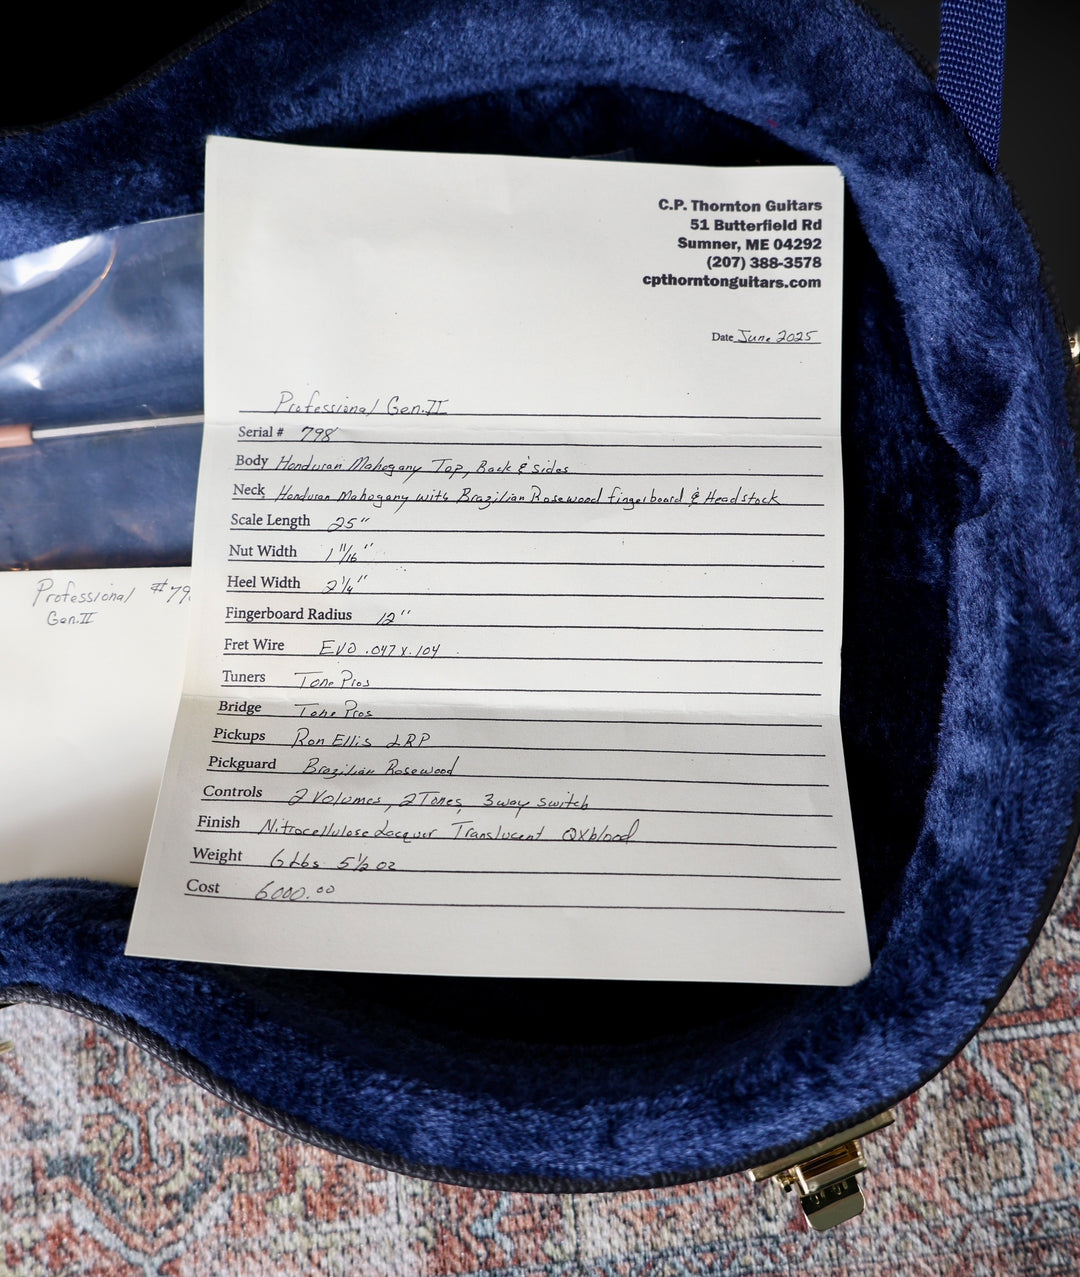 C.P. Thornton Guitars
51 Butterfield Rd
Sumner, ME 04292
(207) 388-3578
cpthorntonguitars.com
Date June 2025
Professional Gen.II
Serial # 798
Body Honduran Mahogany Top, Back & Sides
Neck Honduran Mahogany with Brazilian Rosewood fingerboard & Headstock
Scale Length 25"
Nut Width 1 11/16"
Heel Width 2 1/4"
Fingerboard Radius 12"
Fret Wire EVO .047 x .104
Tuners Tone Pros
Bridge Tone Pros
Pickups Ron Ellis LRP
Pickguard Brazilian Rosewood
Controls 2 Volumes, 2 Tones, 3way switch
Finish Nitrocellulose Lacquer Translucent OXblood
Weight 6 Lbs 5 1/2 oz
Cost 6000.00
Professional #79
Gen.II